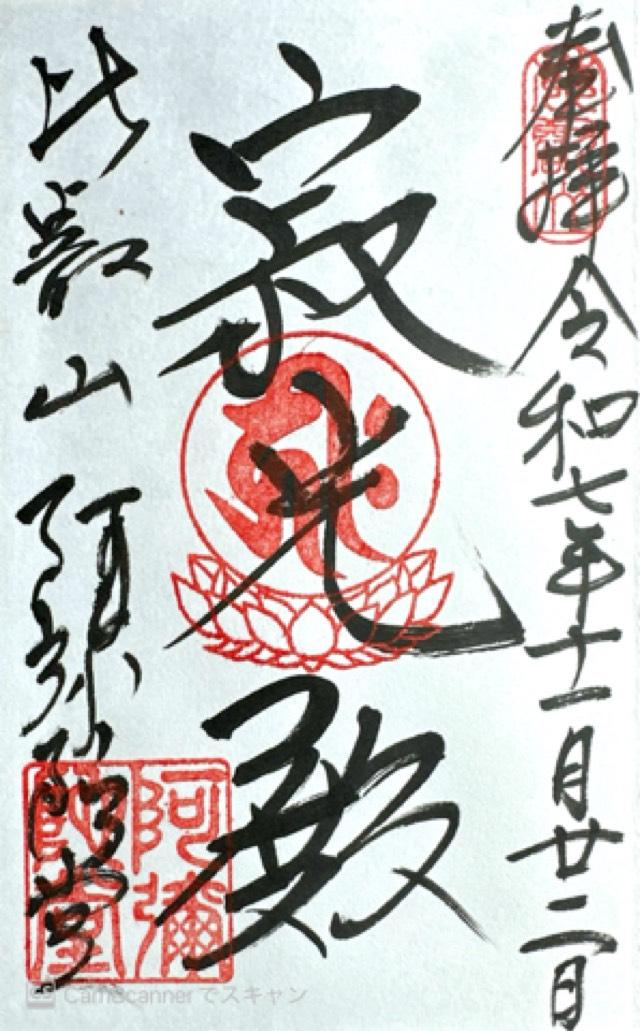 奉拝
令和七年十一月廿二日
寂光殿
比叡山
阿弥陀堂
阿彌陀堂
CamScannerでスキャン